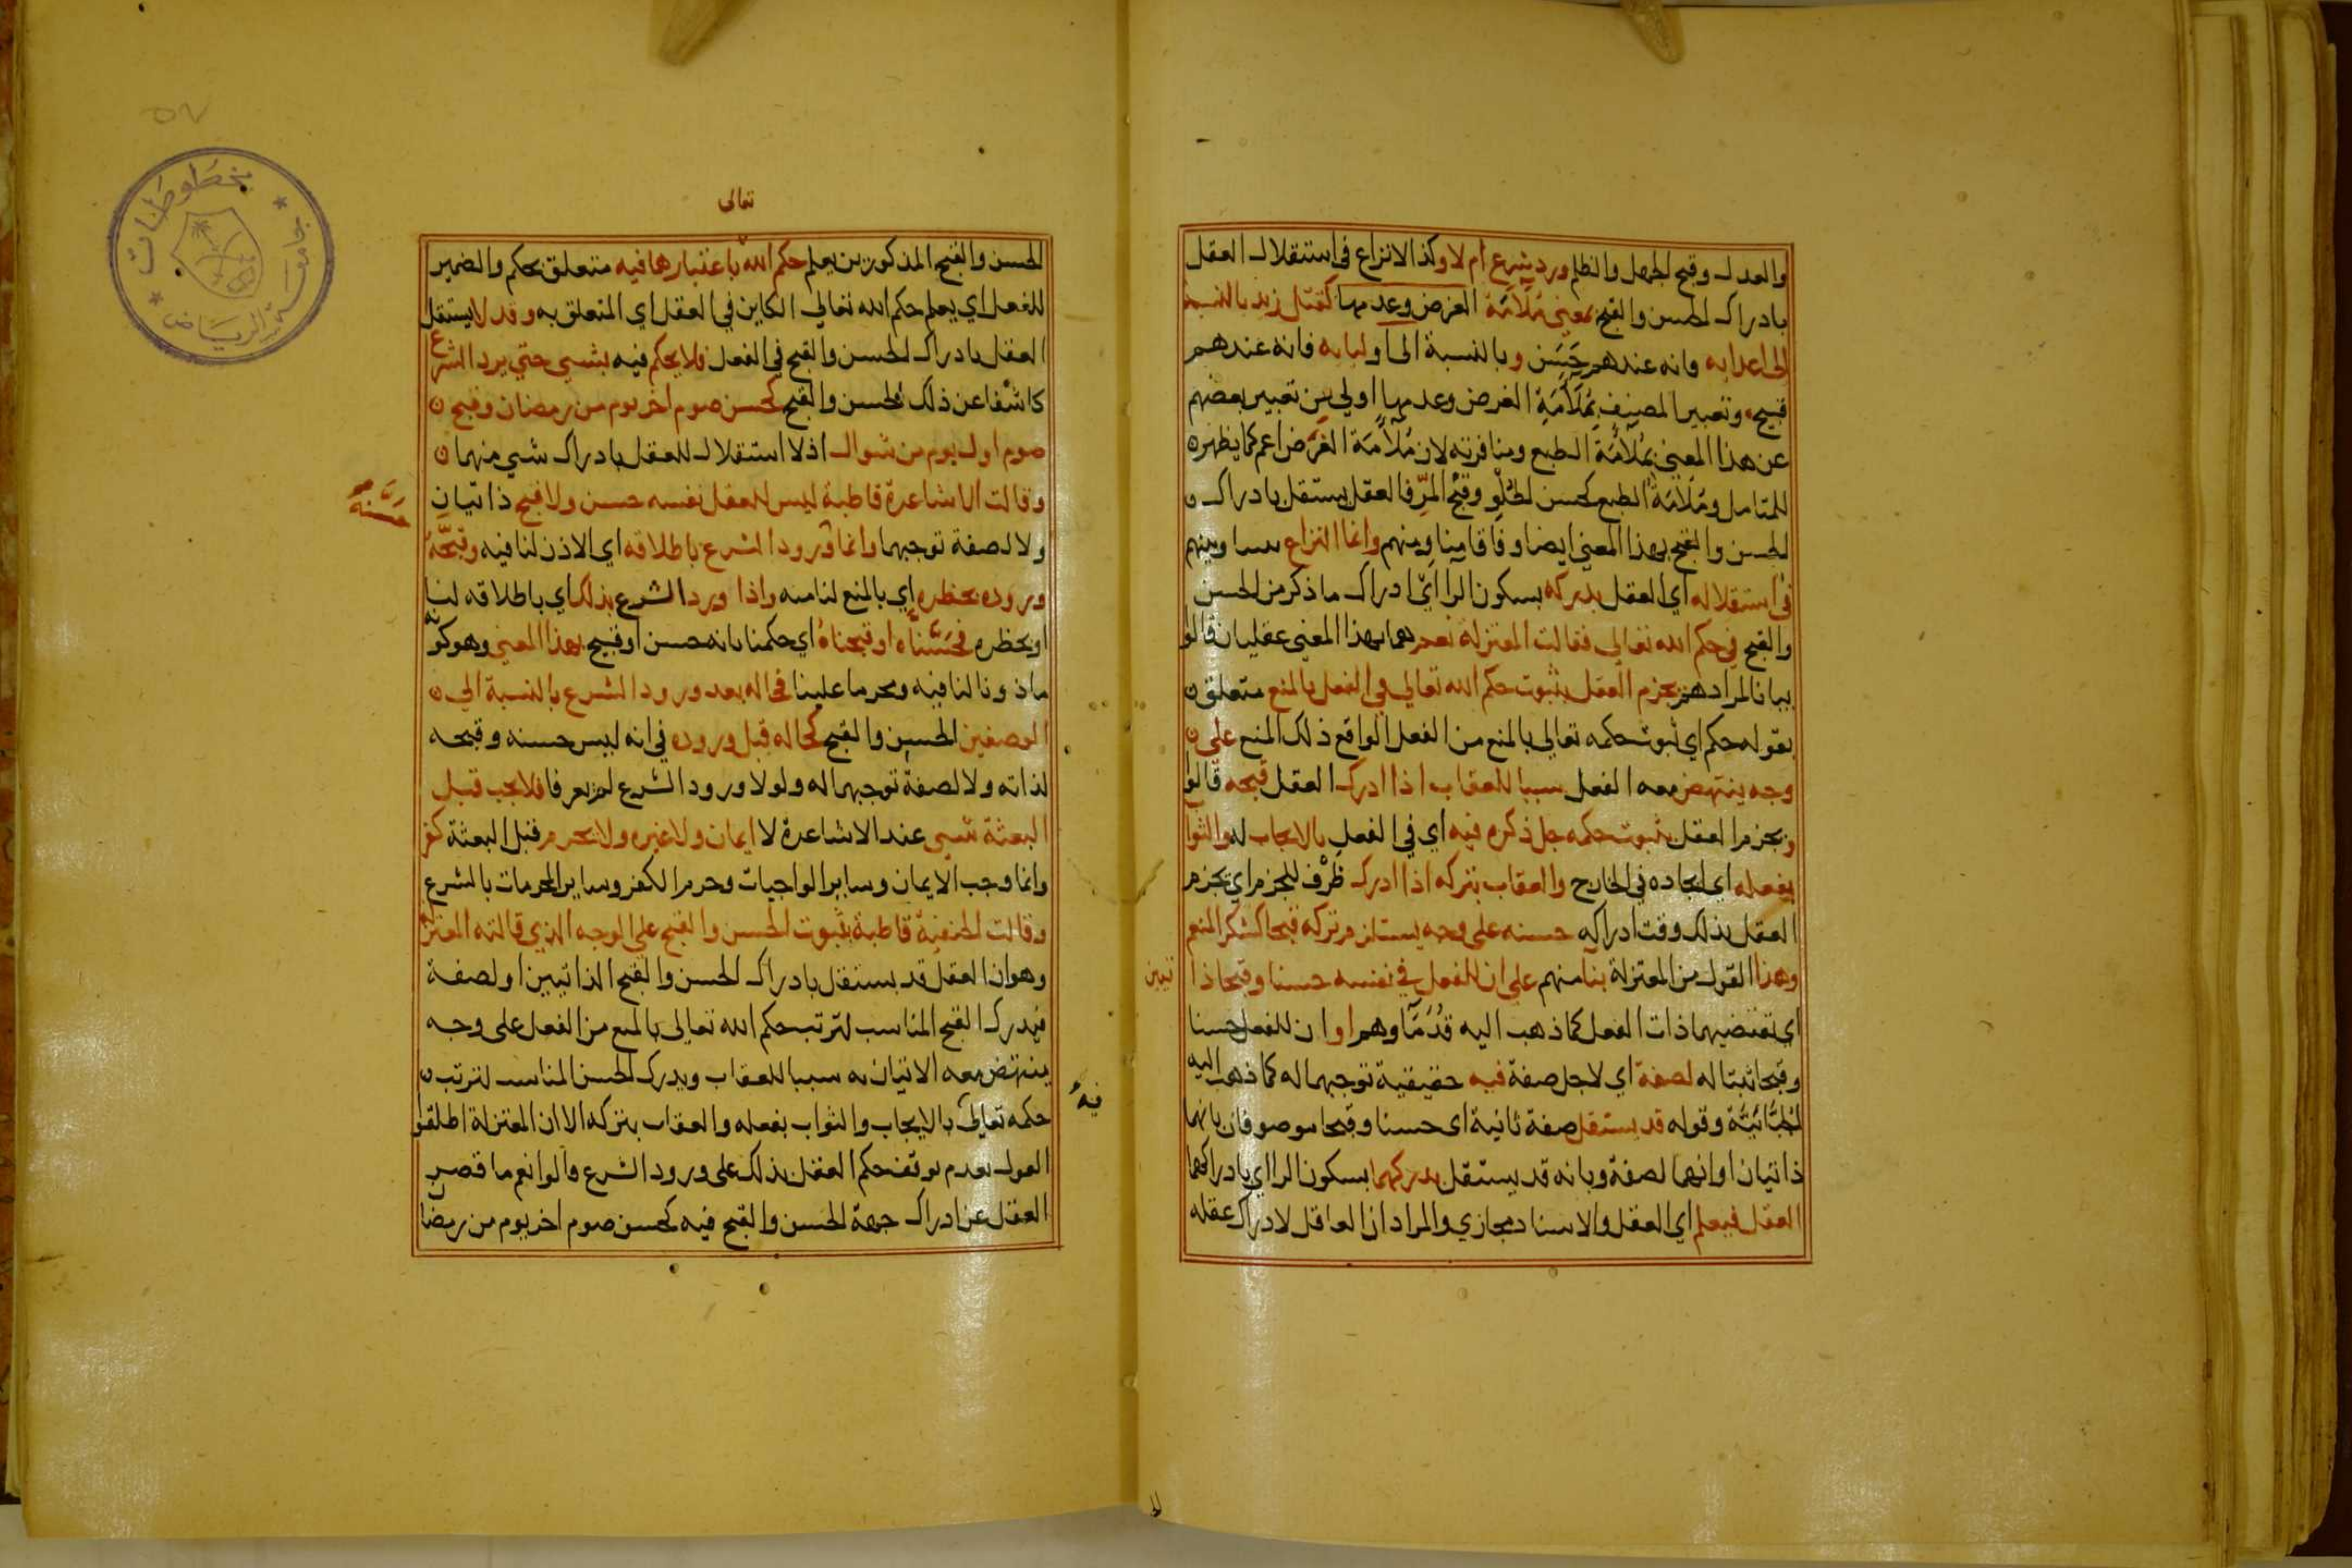 والعدل وقبح الجهل والظلم ورد شرع ام لا وكذا لا نزاع في استقلال العقل
بادراك الحسن والقبح بمعنى ملآمة الغرض وعدمها كقتل زيد بالنسبة
الى اعدايه فانه عندهم حسن وبالنسبة الى اوليايه فانه عندهم
قبيح وتعبير المصنف بملآمة الغرض وعدمها اولي من تعبير بعضهم
عن هذا المعني بملآمة الطبع ومنافرته لان ملآمة الغرض اعم كما يظهر
للمتامل وملآمة الطبع كحسن الحلو وقبح المر فالعقل يستقل بادراك
الحسن والقبح بهذا المعني ايضا وفاقا منا ومنهم وانما النزاع بيننا وبينهم
في استقلاله اي العقل بدركه بسكون الرا اي ادراك ما ذكر من الحسن
والقبح في حكم الله تعالي فقالت المعتزلة نعم هما بهذا المعني عقليان قالوا
بيانا لمرادهم يجزم العقل بثبوت حكم الله تعالي في الفعل بالمنع متعلق
بقوله حكم اي ثبوت حكمه تعالي بالمنع من الفعل الواقع ذلك المنع علي
وجه ينتهض معه الفعل سببا للعقاب اذا ادرك العقل قبحه قالوا
ويجزم العقل بثبوت حكمه جل ذكره فيه اي في الفعل بالايجاب له والثواب
بفعله اي ايجاده في الخارج والعقاب بتركه اذا ادرك ظرف للجزم اي يجزم
العقل بذلك وقت ادراكه حسنه على وجه يستلزم تركه قبحا كشكر المنعم
وهذا القول من المعتزلة بنا منهم علي ان للفعل في نفسه حسنا وقبحا ذا
تيين
اي تقتضيهما ذات الفعل كما ذهب اليه قدمآوهم او ان للفعل حسنا
وقبحا ثبتا له لصفة اي لاجل صفة فيه حقيقية توجبهما له كما ذهب اليه
الجبائية وقوله قد يستقل صفة ثانية اي حسنا وقبحا موصوفان بانهما
ذاتيان او انهما لصفة وبانه قد يستقل بدركهما بسكون الرا اي بادراكهما
العقل فيعلم اي العقل والاسناد مجازي والمراد ان العاقل لادراك عقله
تعالى
الحسن والقبح المذكورين يعلم حكم الله باعتبارهما فيه متعلق بحكم والضمير
للفعل اي يعلم حكم الله تعالي الكاين في العقل اي المتعلق به وقد لا يستقل
العقل بادراك الحسن والقبح في الفعل فلا يحكم فيه بشي حتي يرد الشرع
كاشفا عن ذلك الحسن والقبح كحسن صوم اخر يوم من رمضان وقبح
صوم اول يوم من شوال اذ لا استقلال للعقل بادراك شي منهما
وقالت الاشاعرة قاطبة ليس للعقل نفسه حسن ولا قبح ذاتيان
ولا لصفة توجبهما وانما ورود الشرع باطلاقه اي الاذن لنا فيه وقبحه
حسنه
وروده بحظره اي بالمنع لنا منه واذا ورد الشرع بذلك اي باطلاقه لنا
او بحظره فحسناه او قبحناه اي حكمنا بانه حسن او قبيح بهذا المعني وهو كونه
ماذونا لنا فيه ومحرما علينا فحاله بعد ورود الشرع بالنسبة الي
الوصفين الحسن والقبح كحاله قبل وروده في انه ليس حسنه وقبحه
لذاته ولا لصفة توجبهما له ولولا ورود الشرع لم يعرفا فلا يجب قبل
البعثة شي عند الاشاعرة لا ايمان ولا غيره ولا يحرم قبل البعثة كفر
وانما وجب الايمان وساير الواجبات وحرم الكفر وساير المحرمات بالشرع
وقالت الحنفية قاطبة بثبوت الحسن والقبح علي الوجه الذي قالته المعتزلة
وهو ان العقل قد يستقل بادراك الحسن والقبح الذاتيين او لصفة
فيدرك القبح المناسب لترتب حكم الله تعالى بالمنع من الفعل على وجه
ينتهض معه الاتيان به سببا للعقاب ويدرك الحسن المناسب لترتب
فيه
حكمه تعالى بالايجاب والثواب بفعله والعقاب بتركه الا ان المعتزلة اطلقوا
القول بعدم توقف حكم العقل بذلك على ورود الشرع قالوا نعم ما قصر
العقل عن ادراك جهة الحسن والقبح فيه كحسن صوم اخر يوم من رمضا
جامعة الرياض
مخطوطات